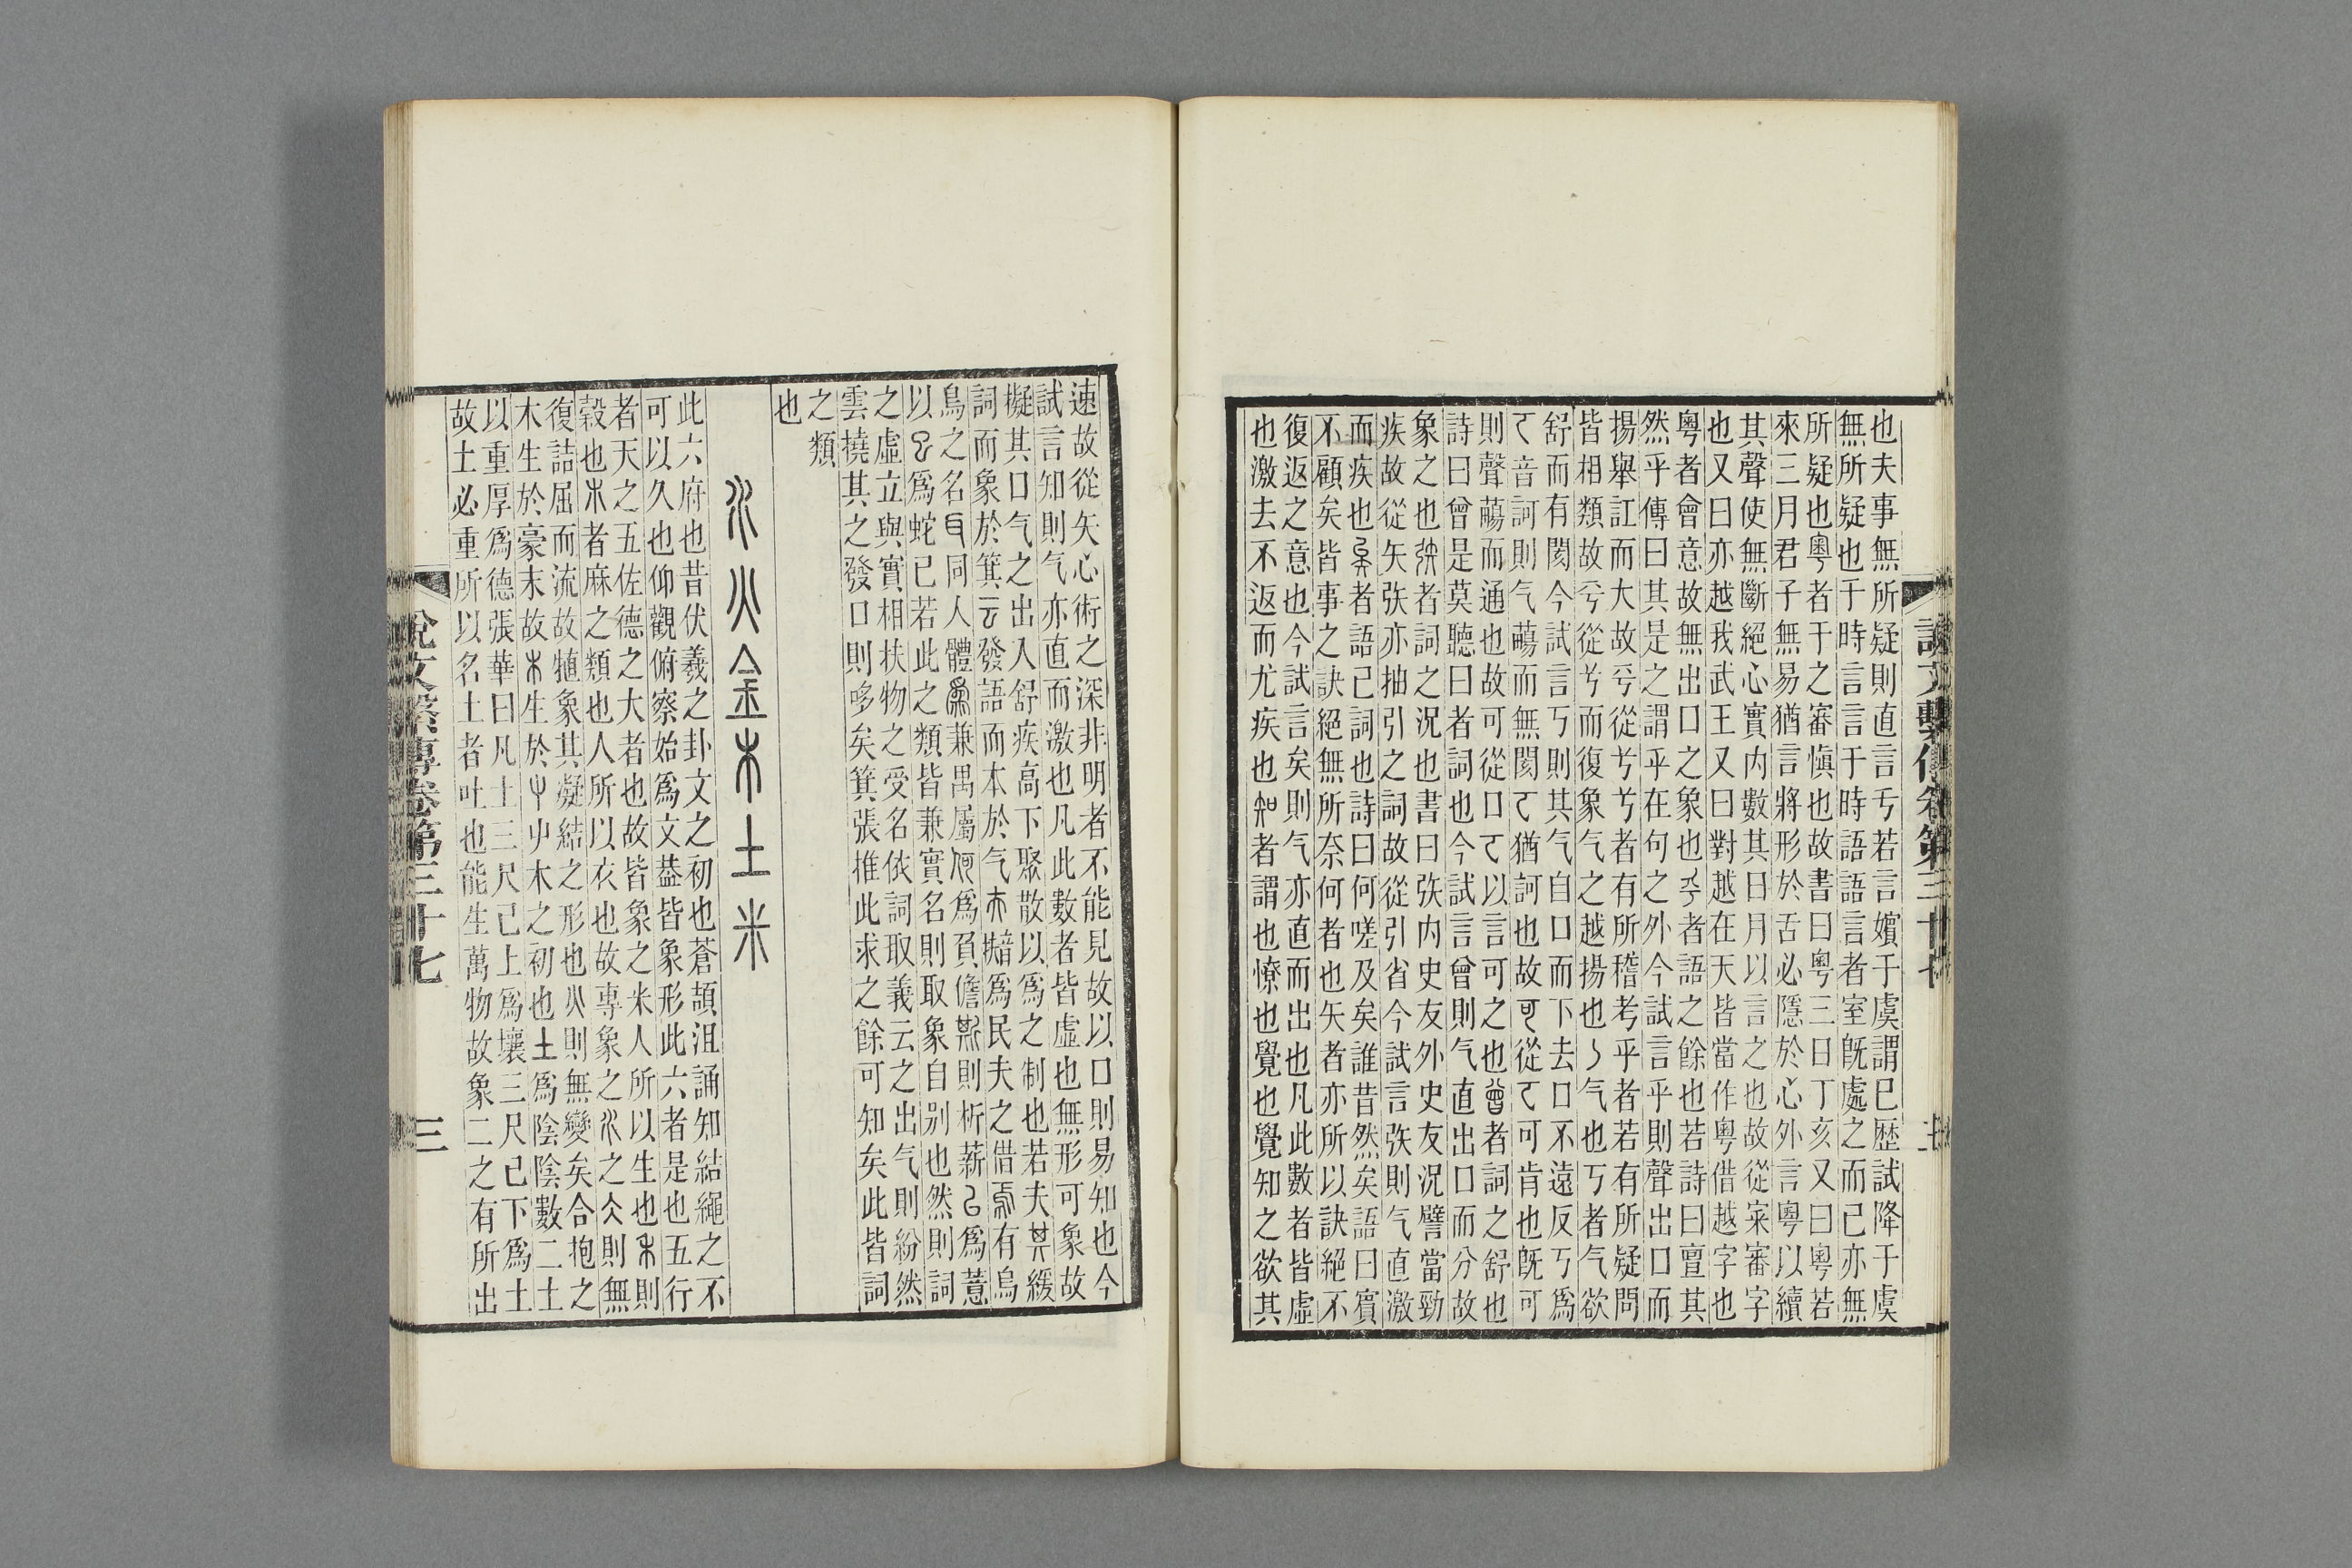 也夫事無所疑則直言亏若言嬪于虞謂已歷試降于虞
無所疑也于時言言于時語語言者室旣處之而已亦無
所疑也粵者于之審愼也故書曰粵三日丁亥又曰粵若
來三月君子無易猶言將形於舌必隱於心外言粵以續
其聲使無斷絕心實内數其日月以言之也故從宷審字
也又曰亦越我武王又曰對越在天皆當作粵借越字也
粵者會意故無出口之象也兮者語之餘也若詩曰亶其
然乎傳曰其是之謂乎在句之外今試言乎則聲出口而
揚舉訌而大故乎從兮兮者有所稽考乎者若有所疑問
皆相類故兮從兮而復象气之越揚也丿气也丂者气欲
舒而有閡今試言丂則其气自口而下去口不遠反丂爲
𠀀音訶則气䔑而無閡𠀀猶訶也故可從𠀀可肯也旣可
則聲䔑而通也故可從口𠀀以言可之也曾者詞之舒也
詩曰曾是莫聽曰者詞也今試言曾則气直出口而分故
象之也矤者詞之況也書曰矤内史友外史友況譬當勁
疾故從矢矤亦抽引之詞故從引省今試言矤則气直激
而疾也者語已詞也詩曰何嗟及矣誰昔然矣語曰賓
不顧矣皆事之訣絕無所奈何者也矢者亦所以訣絕不
復返之意也今試言矣則气亦直而出也凡此數者皆虛
也激去不返而尤疾也知者謂也憭也覺也覺知之欲其
說文繫傳卷第三十七
速故從矢心術之深非明者不能見故以口則易知也今
試言知則气亦直而激也凡此數者皆虛也無形可象故
擬其口气之出入舒疾高下聚散以爲之制也若夫其緩
詞而象於箕云發語而本於气朩爲民夫之借焉有烏
鳥之名同人體兼禺屬爲負儋斯則析薪㠯爲薏
以㠯爲蛇已若此之類皆兼實名則取象自别也然則詞
之虛立與實相扶物之受名依詞取義云之出气則紛然
雲撓其之發口則哆矣箕張推此求之餘可知矣此皆詞
之類
也
水火金木土米
此六府也昔伏羲之卦文之初也蒼頡沮誦知結繩之不
可以久也仰觀俯察始爲文葢皆象形此六者是也五行
者天之五佐德之大者也故皆象之米人所以生也木則
榖也朩者麻之類也人所以衣也故專象之水之仌則無
復詰屈而流故㹌象其凝結之形也火則無變矣合抱之
木生於豪末故木生於屮屮木之初也土爲陰陰數二土
以重厚爲德張華曰凡土三尺已上爲壤三尺已下爲土
故土必重所以名土者吐也能生萬物故象二之有所出
說文繫傳卷第三十七
三